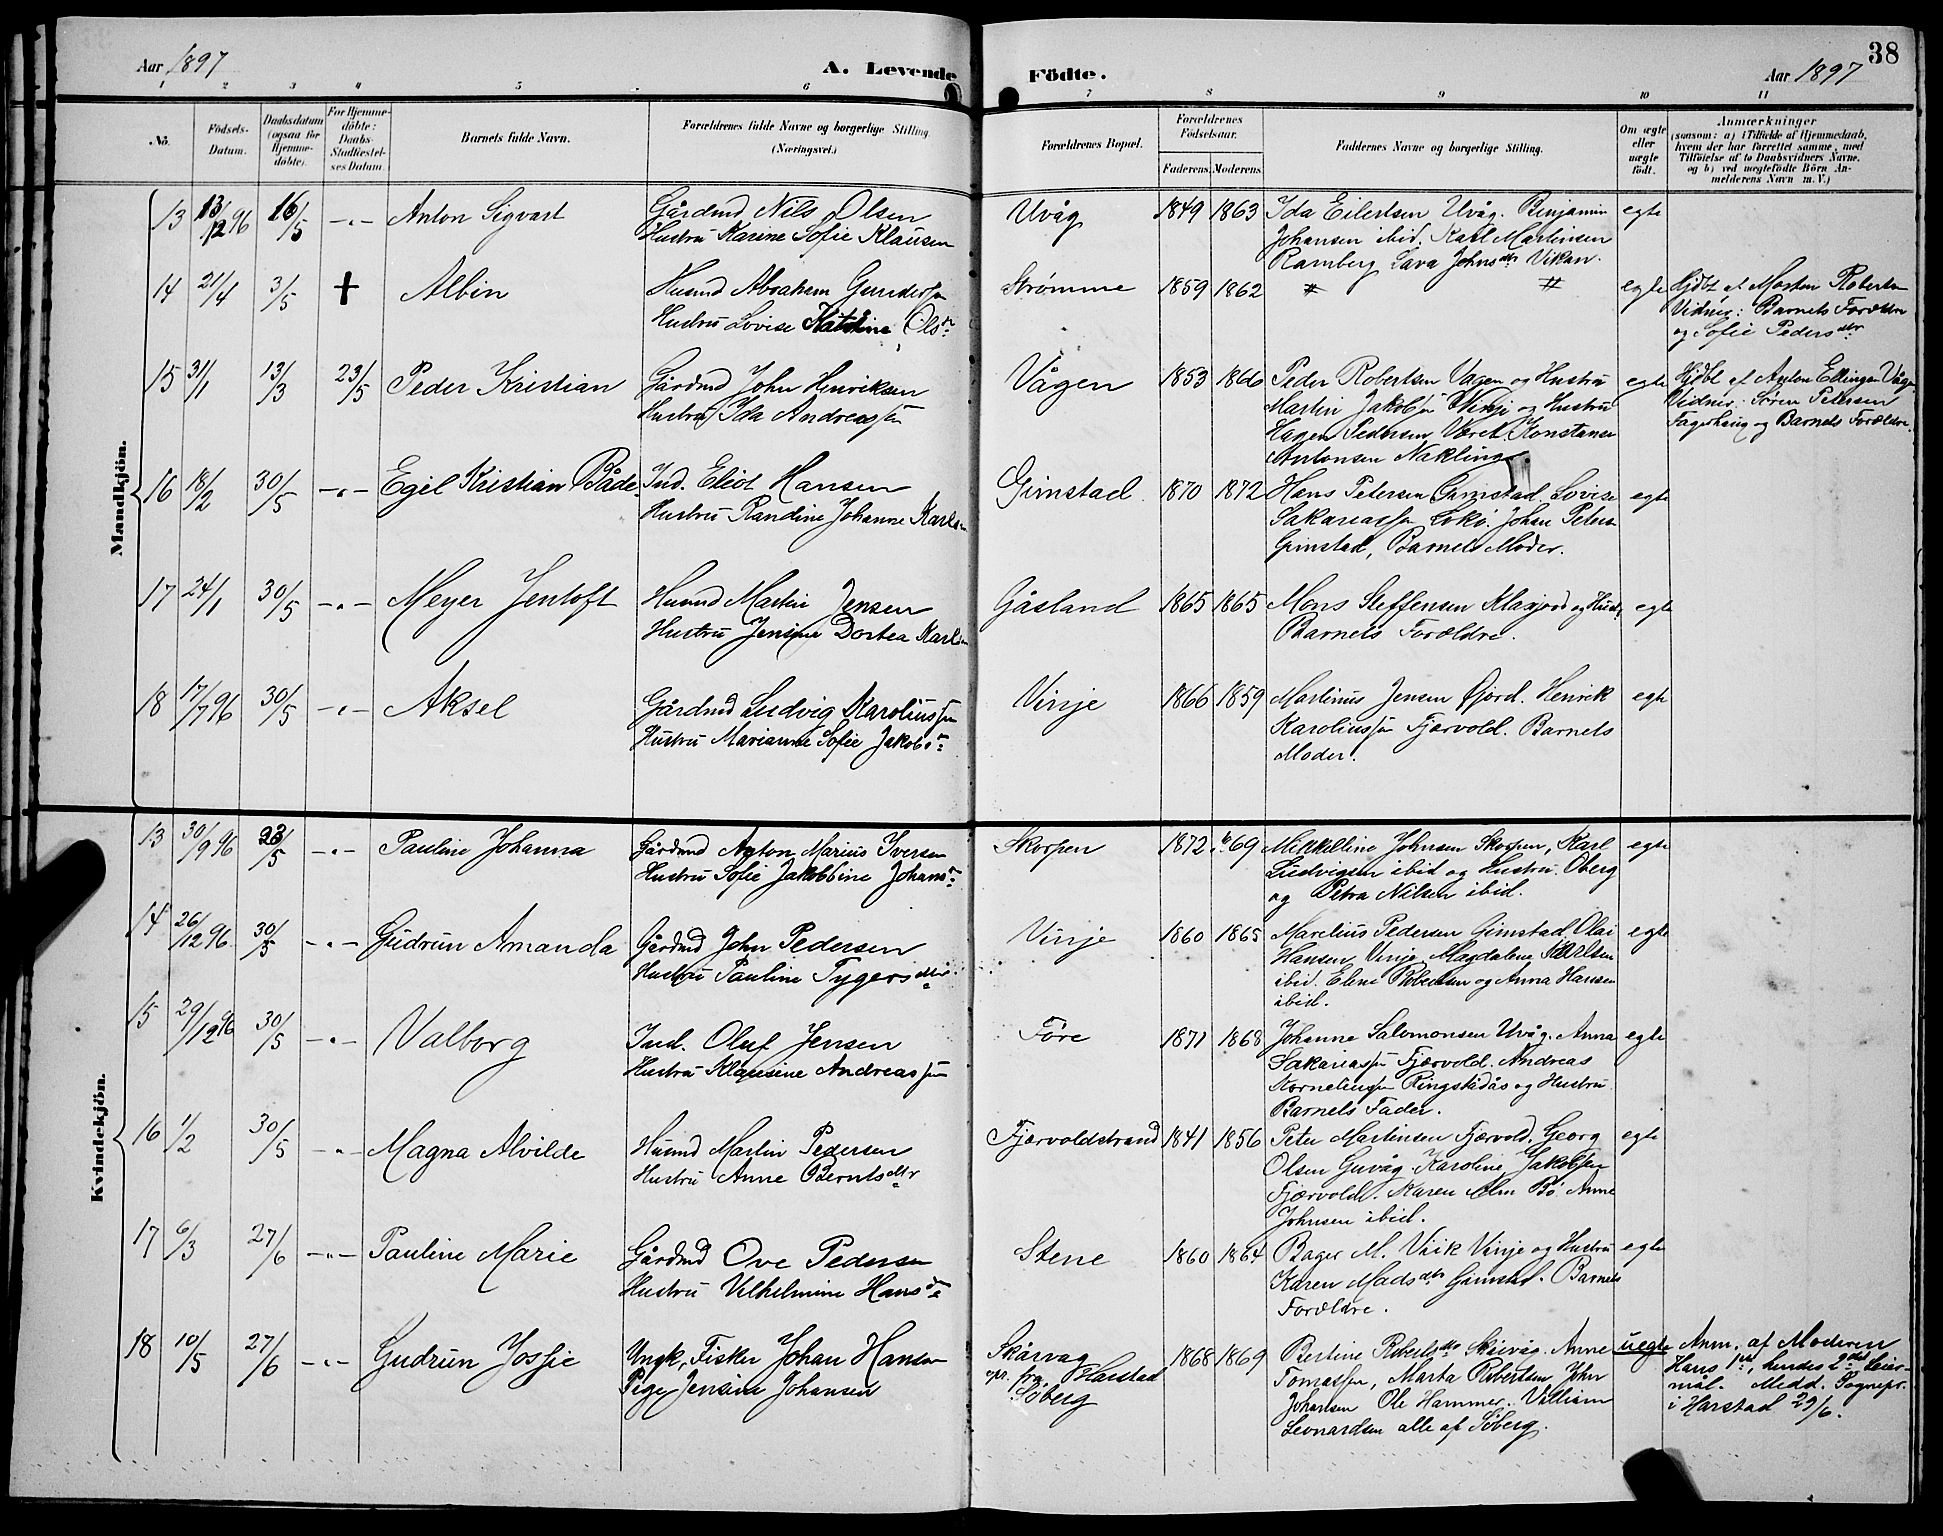 Aar 1897
A. Levende Födte.
Aar 1897
38
1 2 3 4 5 6 7 8 9 10 11
No.
Födsels-Datum.
Daabsdatum (ogsaa for Hjemme-döbte).
For Hjemme-döbte: Daabs-Stadfæstel-ses Datum.
Barnets fulde Navn.
Forældrenes fulde Navne og borgerlige Stilling. (Næringsvei.)
Forældrenes Bopæl.
Forældrenes Födselsaar.
Faderens. Moderens.
Faddernes Navne og borgerlige Stilling.
Om ægte eller uægte födt.
Anmærkninger
(saasom: a) i Tilfælde af Hjemmedaab,
hvem der har forrettet samme, med
Tilföielse af to Daabsvidners Navne,
og b) ved uegtefödte Börn An-
melderens Navn m. V.)
Mandkjön.
13 13/12 96 16/5 -"- Anton Sigvart Gårdmd Nils Olsen Uvåg 1849 1863 Ida Eilertsen Uvåg. Benjamin egte
Hustru Karine Sofie Klausen Johansen ibid. Karl Martinsen
Ramberg Lava Johnsdtr Vikan.
14 21/4 3/5 + Albin Husmd Abraham Gunders̈en Strømme 1859 1862 # # egte Hjdbt af Morten Robertsen
Hustru Lovise Katrine Olsdtr Vidner: Barnets Forældre
og Sofie Pedersdtr
15 31/1 13/3 23/5 Peder Kristian Gårdmd John Henriksen Vågen 1853 1866 Peder Robertsen Vågen og Hustru egte Hjdbt af Anton Ellingsen Vågen
Hustru Ida Andreassen Martin Jakobsen Vinje og Hustru Vidner: Søren Petersen
Hagen Pedersen Været Konstanse Fagerhaug og Barnets Forældre.
Antonsen Nakling.
16 18/2 30/5 -"- Egil Kristian Både Ind. Eliot Hansen Gimstad 1870 1872 Hans Petersen Gimstad. Lovise egte
Hustru Randine Johanne Karlsen Sakariassen Lokö. Johan Peters
Gimstad, Barnets Moder.
17 24/1 30/5 -"- Meyer Jentoft Husmd Martin Jensen Gåsland 1865 1865 Mons Steffensen Klaxjord og Hustr. egte
Hustru Jensine Dortea Karlsen Barnets Forældre.
18 17/7 96 30/5 -"- Aksel Gårdmd Ludvig Karoliussen Vinje 1866 1859 Martinus Jensen Øjord. Henrik egte
Hustru Marianne Sofie Jakobsdtr Karoliussen Fjærvold. Barnets
Moder.
Kvindekjön.
13 30/9 96 23/5 -"- Pauline Johanna Gårdmd Anton Marius Iversen Skorpen 1872 69 Mikkeline Johnsen Skorpen, Karl egte
Hustru Sofie Jakobbine Johansdtr Ludvigsen ibid og Hustru. Oberg
og Petra Nilsen ibid.
14 26/12 96 30/5 -"- Gudrun Amanda Gårdmd John Pedersen Vinje 1860 1865 Marelius Pedersen Gimstad Olai egte
Hustru Pauline Tygersdtr. Hansen Vinje. Magdalene Karlsen
ibid. Elene Pedersen og Anna Hansen
ibid.
15 29/12 96 30/5 -"- Valborg Ind. Oluf Jensen Føre 1871 1868 Johanne Salomonsen Uvåg. Anna egte
Hustru Klausine Andreassen Sakariassen Fjærvold. Andreas
Korneliussen Ringstadås og Hustru.
Barnets Fader.
16 1/2 30/5 -"- Magna Alvilde Husmd Martin Pedersen Fjærvoldstrand 1841 1856 Peter Martinsen Fjærvold. Georg egte
Hustru Anne Berntsdtr Olsen Guvåg. Karoline Jakobsen
Fjærvold. Karen Alm Bö. Anne
Johnsen ibid.
17 6/3 27/6 -"- Pauline Marie Gårdmd Ove Pedersen Stene 1860 1864 Bager M. Viik Vinje og Hustru egte
Hustru Vilhelmine Hansdtr Karen Madsdtr Gimstad. Barnets
Forældre.
18 10/5 27/6 -"- Gudrun Jossie Ungk, Fisker Johan Hansen Skårvåg 1868 1869 Bertine Robertsdtr Skårvåg. Anne uegte Anm. af Moderen
Pige Jensine Johansen opr. fra Harstad Tomassen, Marta Robertsen John Hans 1ste, hendes 2det Leier-
Søberg Johansen Ole Hammer. Villiam mål. Medd. Sognepr.
Leonardsen alle af Søberg. i Harstad 29/6.